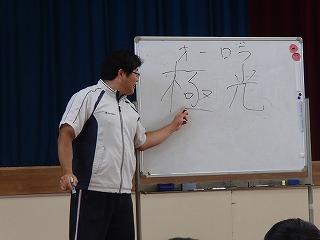 オーロラ
極光